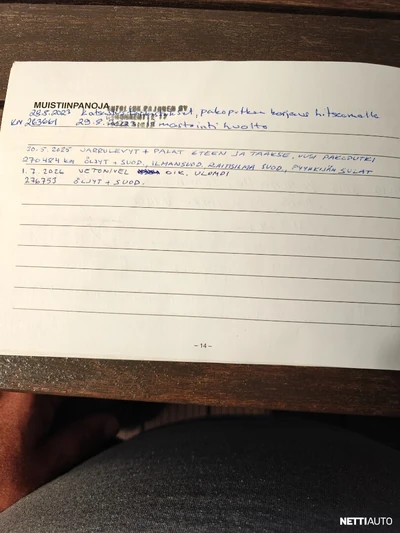 MUISTIINPANOJA
28.8.2023 pakoputken korjaus hitsaamalla
KM 263661 29.8. huolto
30.5.2025 JARRULEVYT + PALAT ETEEN JA TAAKSE, UUSI PAKOPUTKI
270484 KM ÖLJYT + SUOD, ILMANSUOD, RAITISILMA SUOD, PYYHKIJÄN SULAT
1.7.2026 VETONIVEL OIK. ULOMPI
276753 ÖLJYT + SUOD.
– 14 –
NETTIAUTO